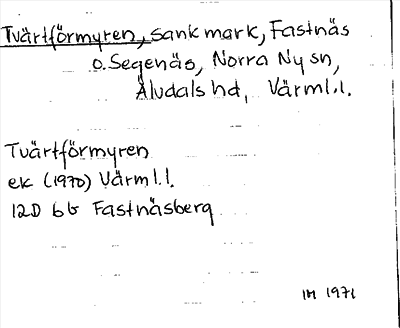 Tvärtförmyren, sank mark, Fastnäs
o. Segenäs, Norra Ny sn,
Älvdals hd, Värml.l.
Tvärtförmyren
ek (1970) Värml.l.
12D 6b Fastnäsberg
IM 1971